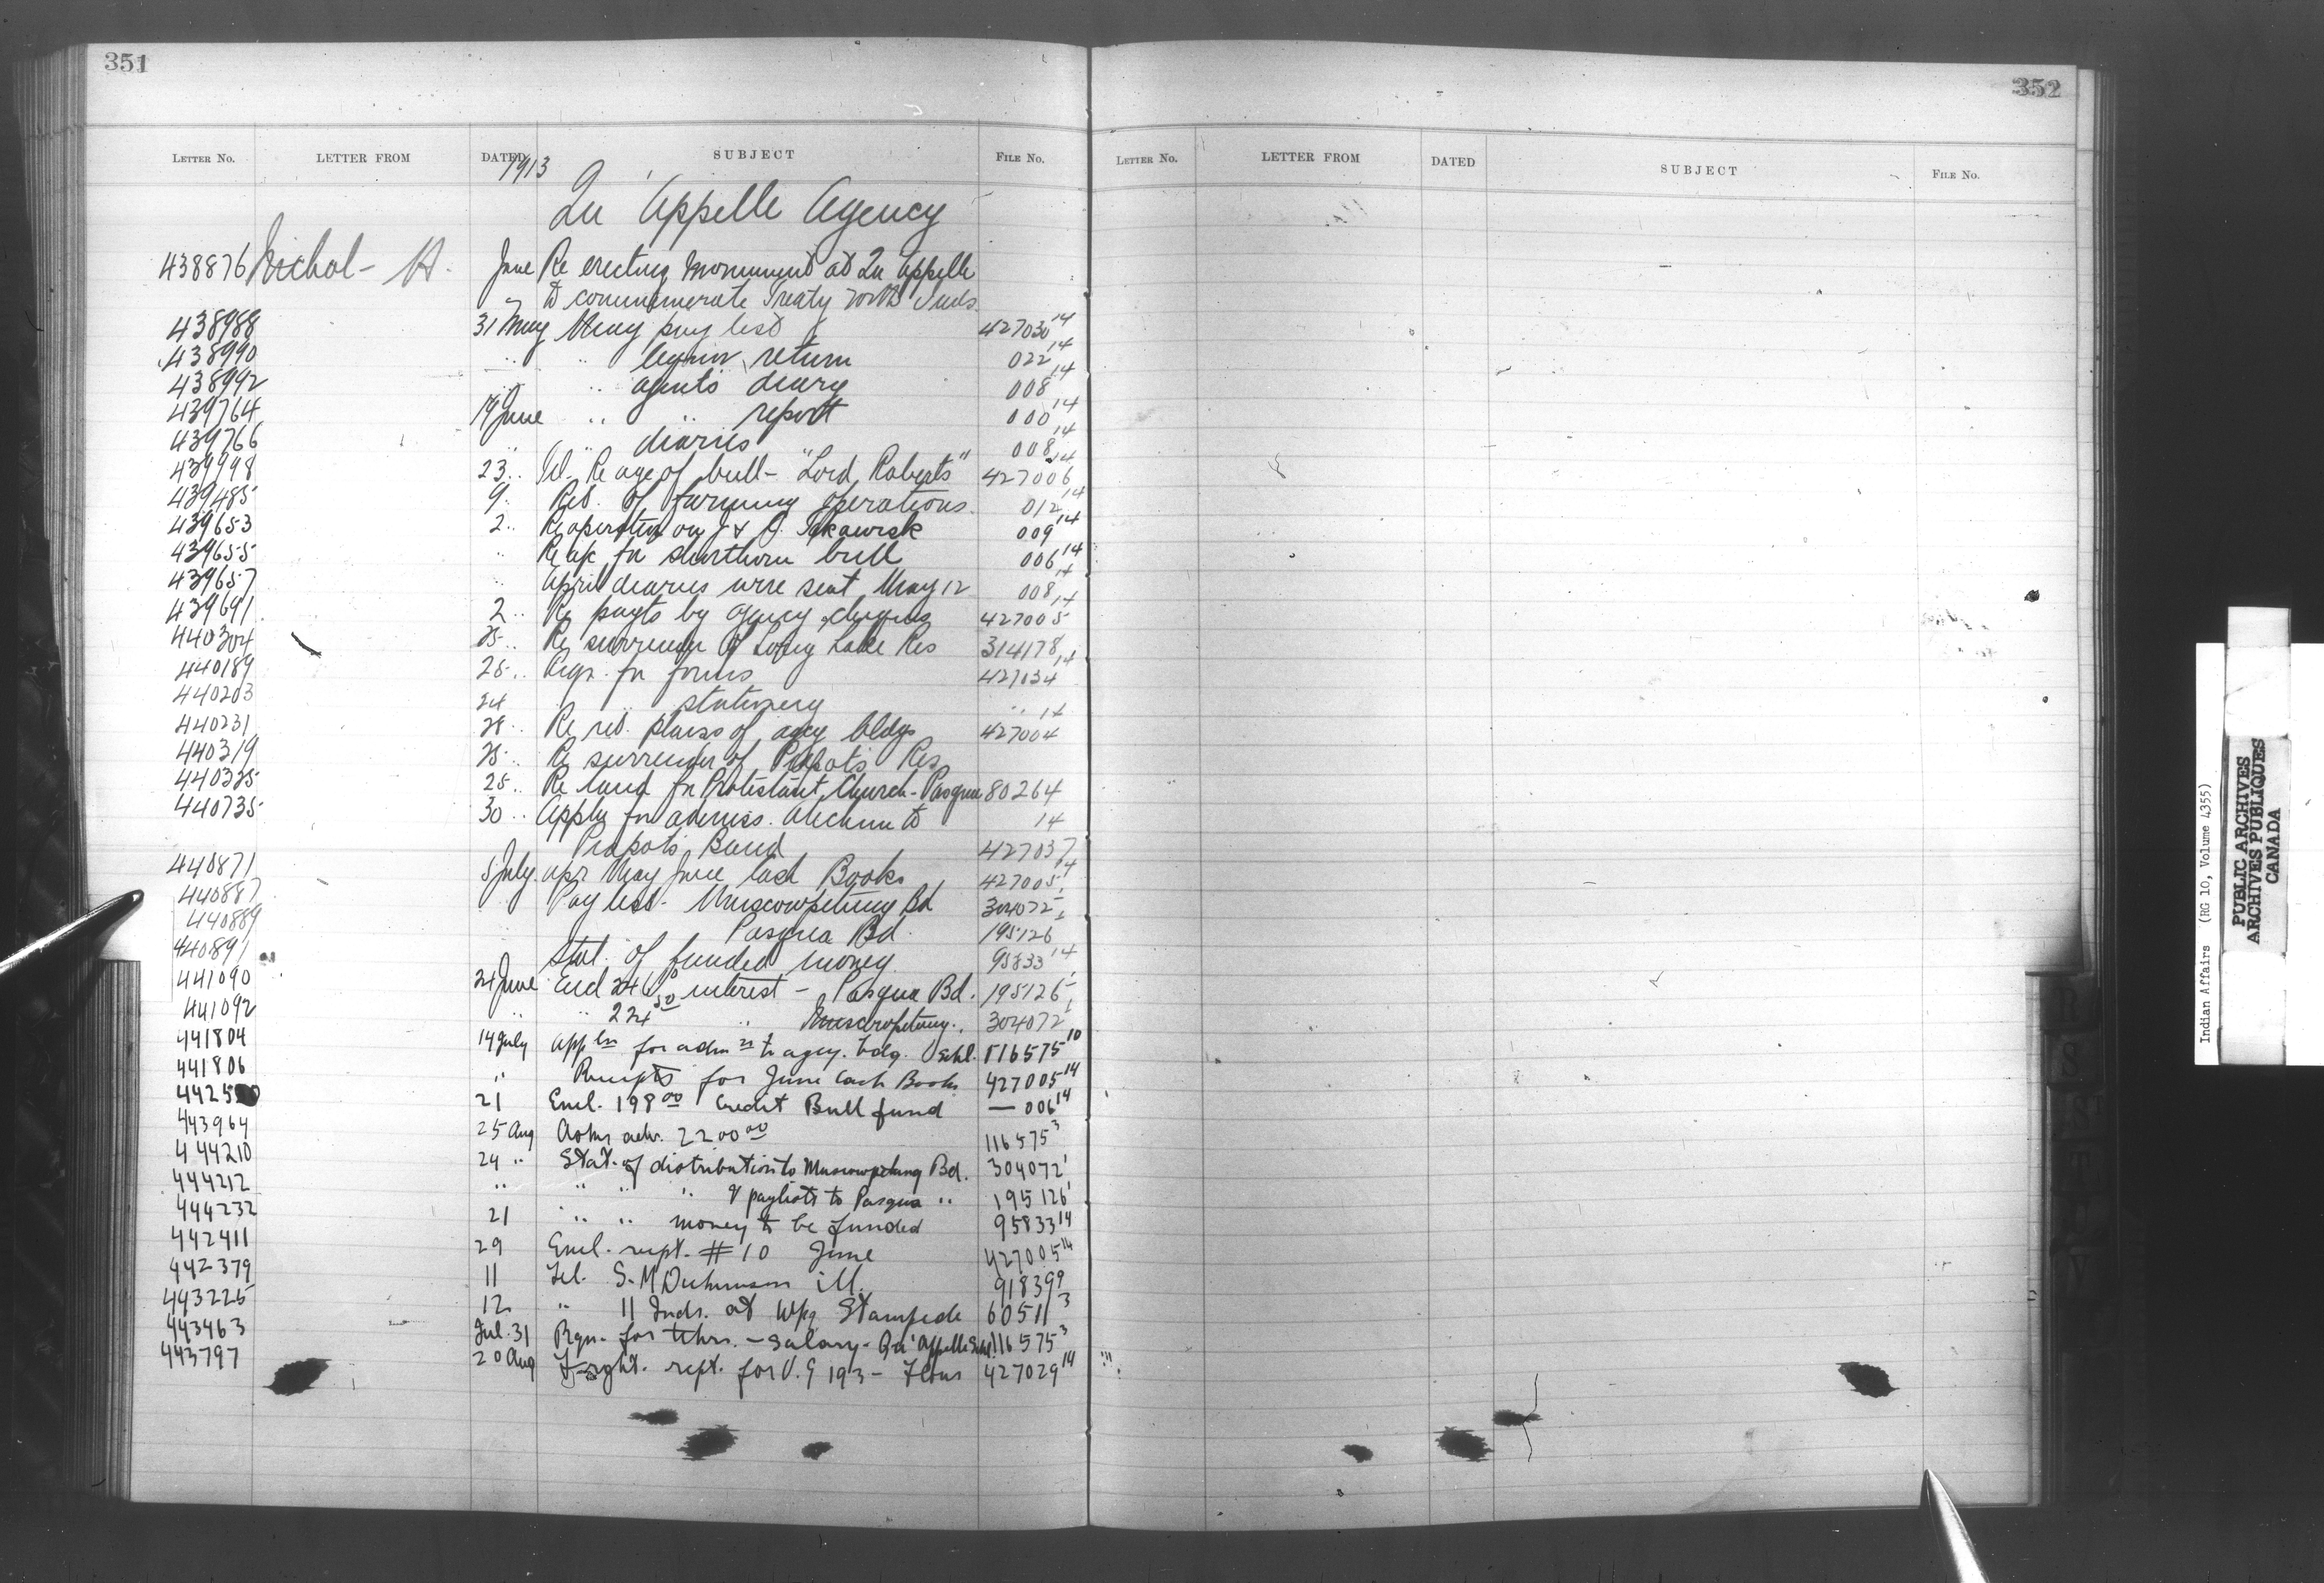 351
LETTER NO. LETTER FROM DATED SUBJECT FILE NO.
1913
Qu'Appelle Agency
438876 Nichol - A. June Re erecting Monument at Qu'Appelle
to commemorate Treaty with Inds.
438988 31 May May pay list 427030 14
438990 " " return 022 14
438992 " " agents diary 008 14
439764 19 June " " report 000 14
439766 " " diaries 008 14
439998 23 " Re age of bull - "Lord Roberts" 427006 14
439485 9 " Ret. of farming operations. 012 14
439653 2 " Re operation on J & 009 14
439655 " Re for shorthorn bull 006 14
439657 " April diaries were sent May 12 008 14
439691 2 " Re payts by agency cheques 427005 14
440304 25 " Re surrender of Long Lake Res 314178
440189 25 " Reqn. for forms 427034 14
440203 24 " stationery " 14
440231 28 " Re ret. plans of agcy bldgs 427004
440319 25 " Re surrender of Piapot's Res
440325 25 " Re land for Protestant Church - Pasqua 80264
440735 30 " Appln for admiss. to 14
Piapots Band 427037
440871 5 July Apr May June Cash Books 427005 14
440887 " Pay list - Muscowpetung Bd 304072 1
440889 " Pasqua Bd. 195126 1
440891 Stat. of funded money 95833 14
441090 24 June Encl interest - Pasqua Bd. 195126 1
441092 " " 224 50 " Muscowpetung. 304072 1
441804 14 July Appln for admn to agcy. bdg. Schl. 116575 10
441806 " Receipts for June Cash Books 427005 14
4425 21 Encl. 198 00 Credit Bull fund — 006 14
443964 25 Aug adv. 2200 00 116575 3
444210 24 " Stat. of distribution to Muscowpetung Bd. 304072 1
444212 " " " " & paylists to Pasqua " 195126 1
444232 21 " " money to be funded 95833 14
442411 29 Encl. rept. # 10 June 427005 14
442379 11 Tel. S. M. Dickinson ill. 91839 9
443225 12 " 11 Inds. at Wpg Stampede 60511 3
443463 Jul. 31 Rqn. for tchrs. - Salary - Qu'Appelle Schl. 116575 3
443797 20 Aug Frght. rept. for V.G 193 - 427029 14
352
LETTER NO. LETTER FROM DATED SUBJECT FILE NO.
Indian Affairs (RG 10, Volume 4355)
PUBLIC ARCHIVES
ARCHIVES PUBLIQUES
CANADA